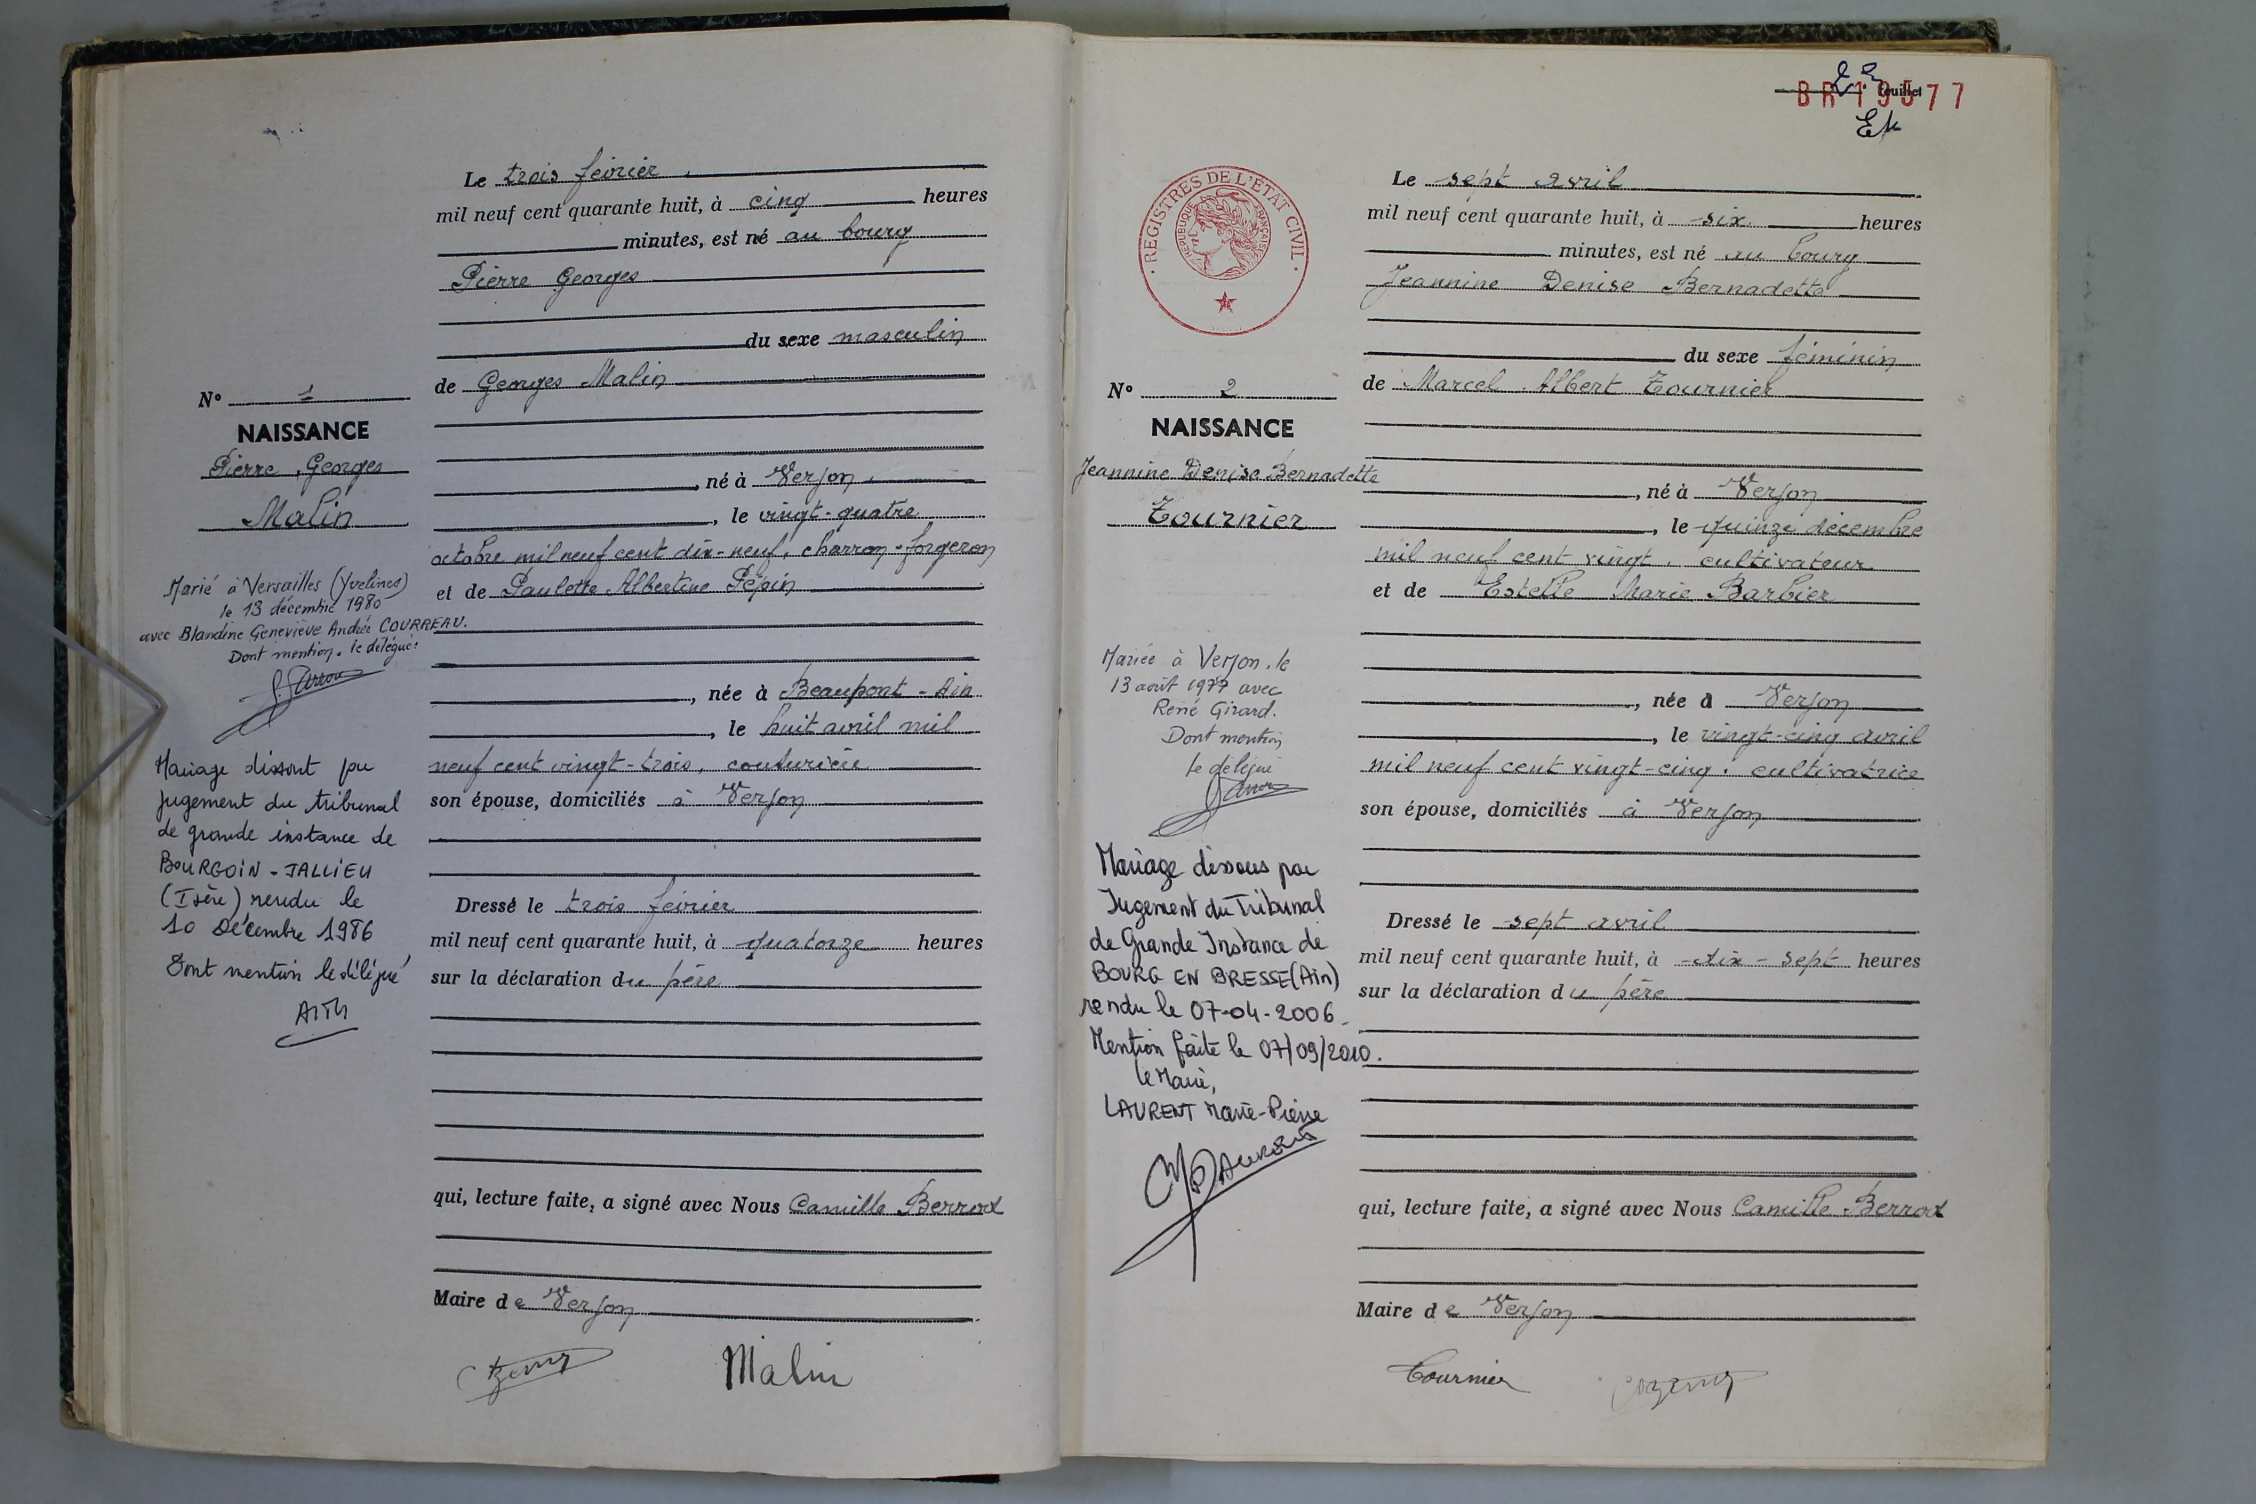 Le trois février
mil neuf cent quarante huit, à cinq heures
minutes, est né au bourg
Pierre Georges
du sexe masculin
N° 1
de Georges Malin
NAISSANCE
Pierre, Georges
Malin
, né à Verjon
, le vingt-quatre
octobre mil neuf cent dix-neuf, charron-forgeron
et de Paulette Albertine Pépin
Marié à Versailles (Yvelines)
le 13 décembre 1980
avec Blandine Geneviève Andrée COURREAU.
Dont mention. le délégué:
, née à Beaupont - Ain
, le huit avril mil
neuf cent vingt-trois, couturière
son épouse, domiciliés à Verjon
Mariage dissout par
jugement du tribunal
de grande instance de
BOURGOIN-JALLIEU
(Isère) rendu le
10 Décembre 1986
Dont mention le délégué
Dressé le trois février
mil neuf cent quarante huit, à quatorze heures
sur la déclaration du père
qui, lecture faite, a signé avec Nous Camille Berrod
Maire de Verjon
Malin
BR19577
feuillet
REGISTRES DE L'ÉTAT CIVIL
RÉPUBLIQUE FRANÇAISE
Le sept avril
mil neuf cent quarante huit, à six heures
minutes, est né au bourg
Jeannine Denise Bernadette
du sexe féminin
N° 2
de Marcel Albert Tournier
NAISSANCE
Jeannine Denise Bernadette
Tournier
, né à Verjon
, le quinze décembre
mil neuf cent vingt, cultivateur
et de Estelle Marie Barbier
Mariée à Verjon. le
13 août 1977 avec
René Girard.
Dont mention
le délégué
, née à Verjon
, le vingt-cinq avril
mil neuf cent vingt-cinq, cultivatrice
son épouse, domiciliés à Verjon
Mariage dissous par
Jugement du Tribunal
de Grande Instance de
BOURG EN BRESSE (Ain)
rendu le 07-04-2006
Mention faite le 07/09/2010.
le Maire,
LAURENT Marie-Pierre
Dressé le sept avril
mil neuf cent quarante huit, à dix-sept heures
sur la déclaration du père
qui, lecture faite, a signé avec Nous Camille Berrod
Maire de Verjon
Tournier